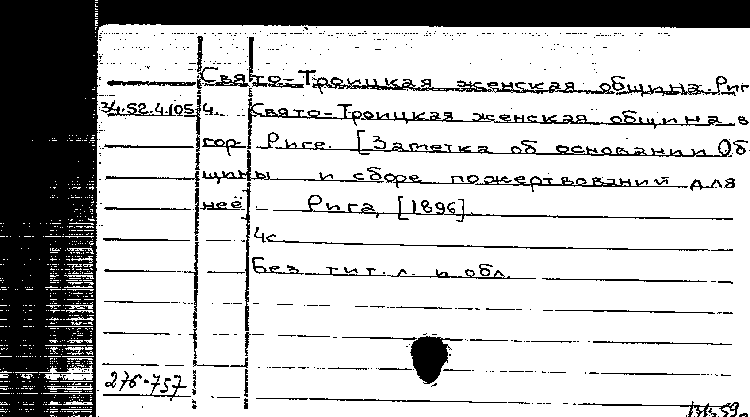 Свято-Троицкая женская община. Риг
34.52.4.105 4. Свято-Троицкая женская община в
гор Риге. [Заметка об основании Об
щины и сборе пожертвований для
неё] Рига, [1896].
4с
Без тит. л. и обл.
276-757